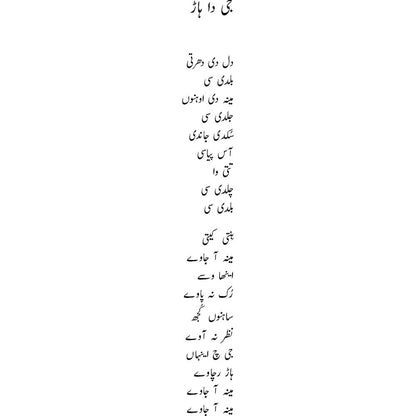 جی دا ہاڑ
دل دی دھرتی
بلدی سی
مینہ دی اوہنوں
جلدی سی
سُکدی جاندی
آس پیاسی
تتی وا
چلدی سی
بلدی سی
بنتی کیتی
مینہ آ جاوے
اینھا وسے
رُک نہ پاوے
ساہنوں کُجھ
نظر نہ آوے
جی چ اینہاں
ہاڑ رچاوے
مینہ آ جاوے
مینہ آ جاوے